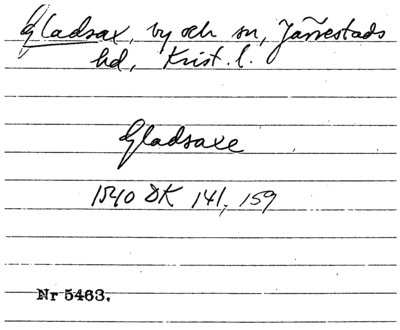 Gladsax, by och sn, Järrestads
hd, Krist. l.
Gladsaxe
1540 DK 141, 159
Nr 5463.